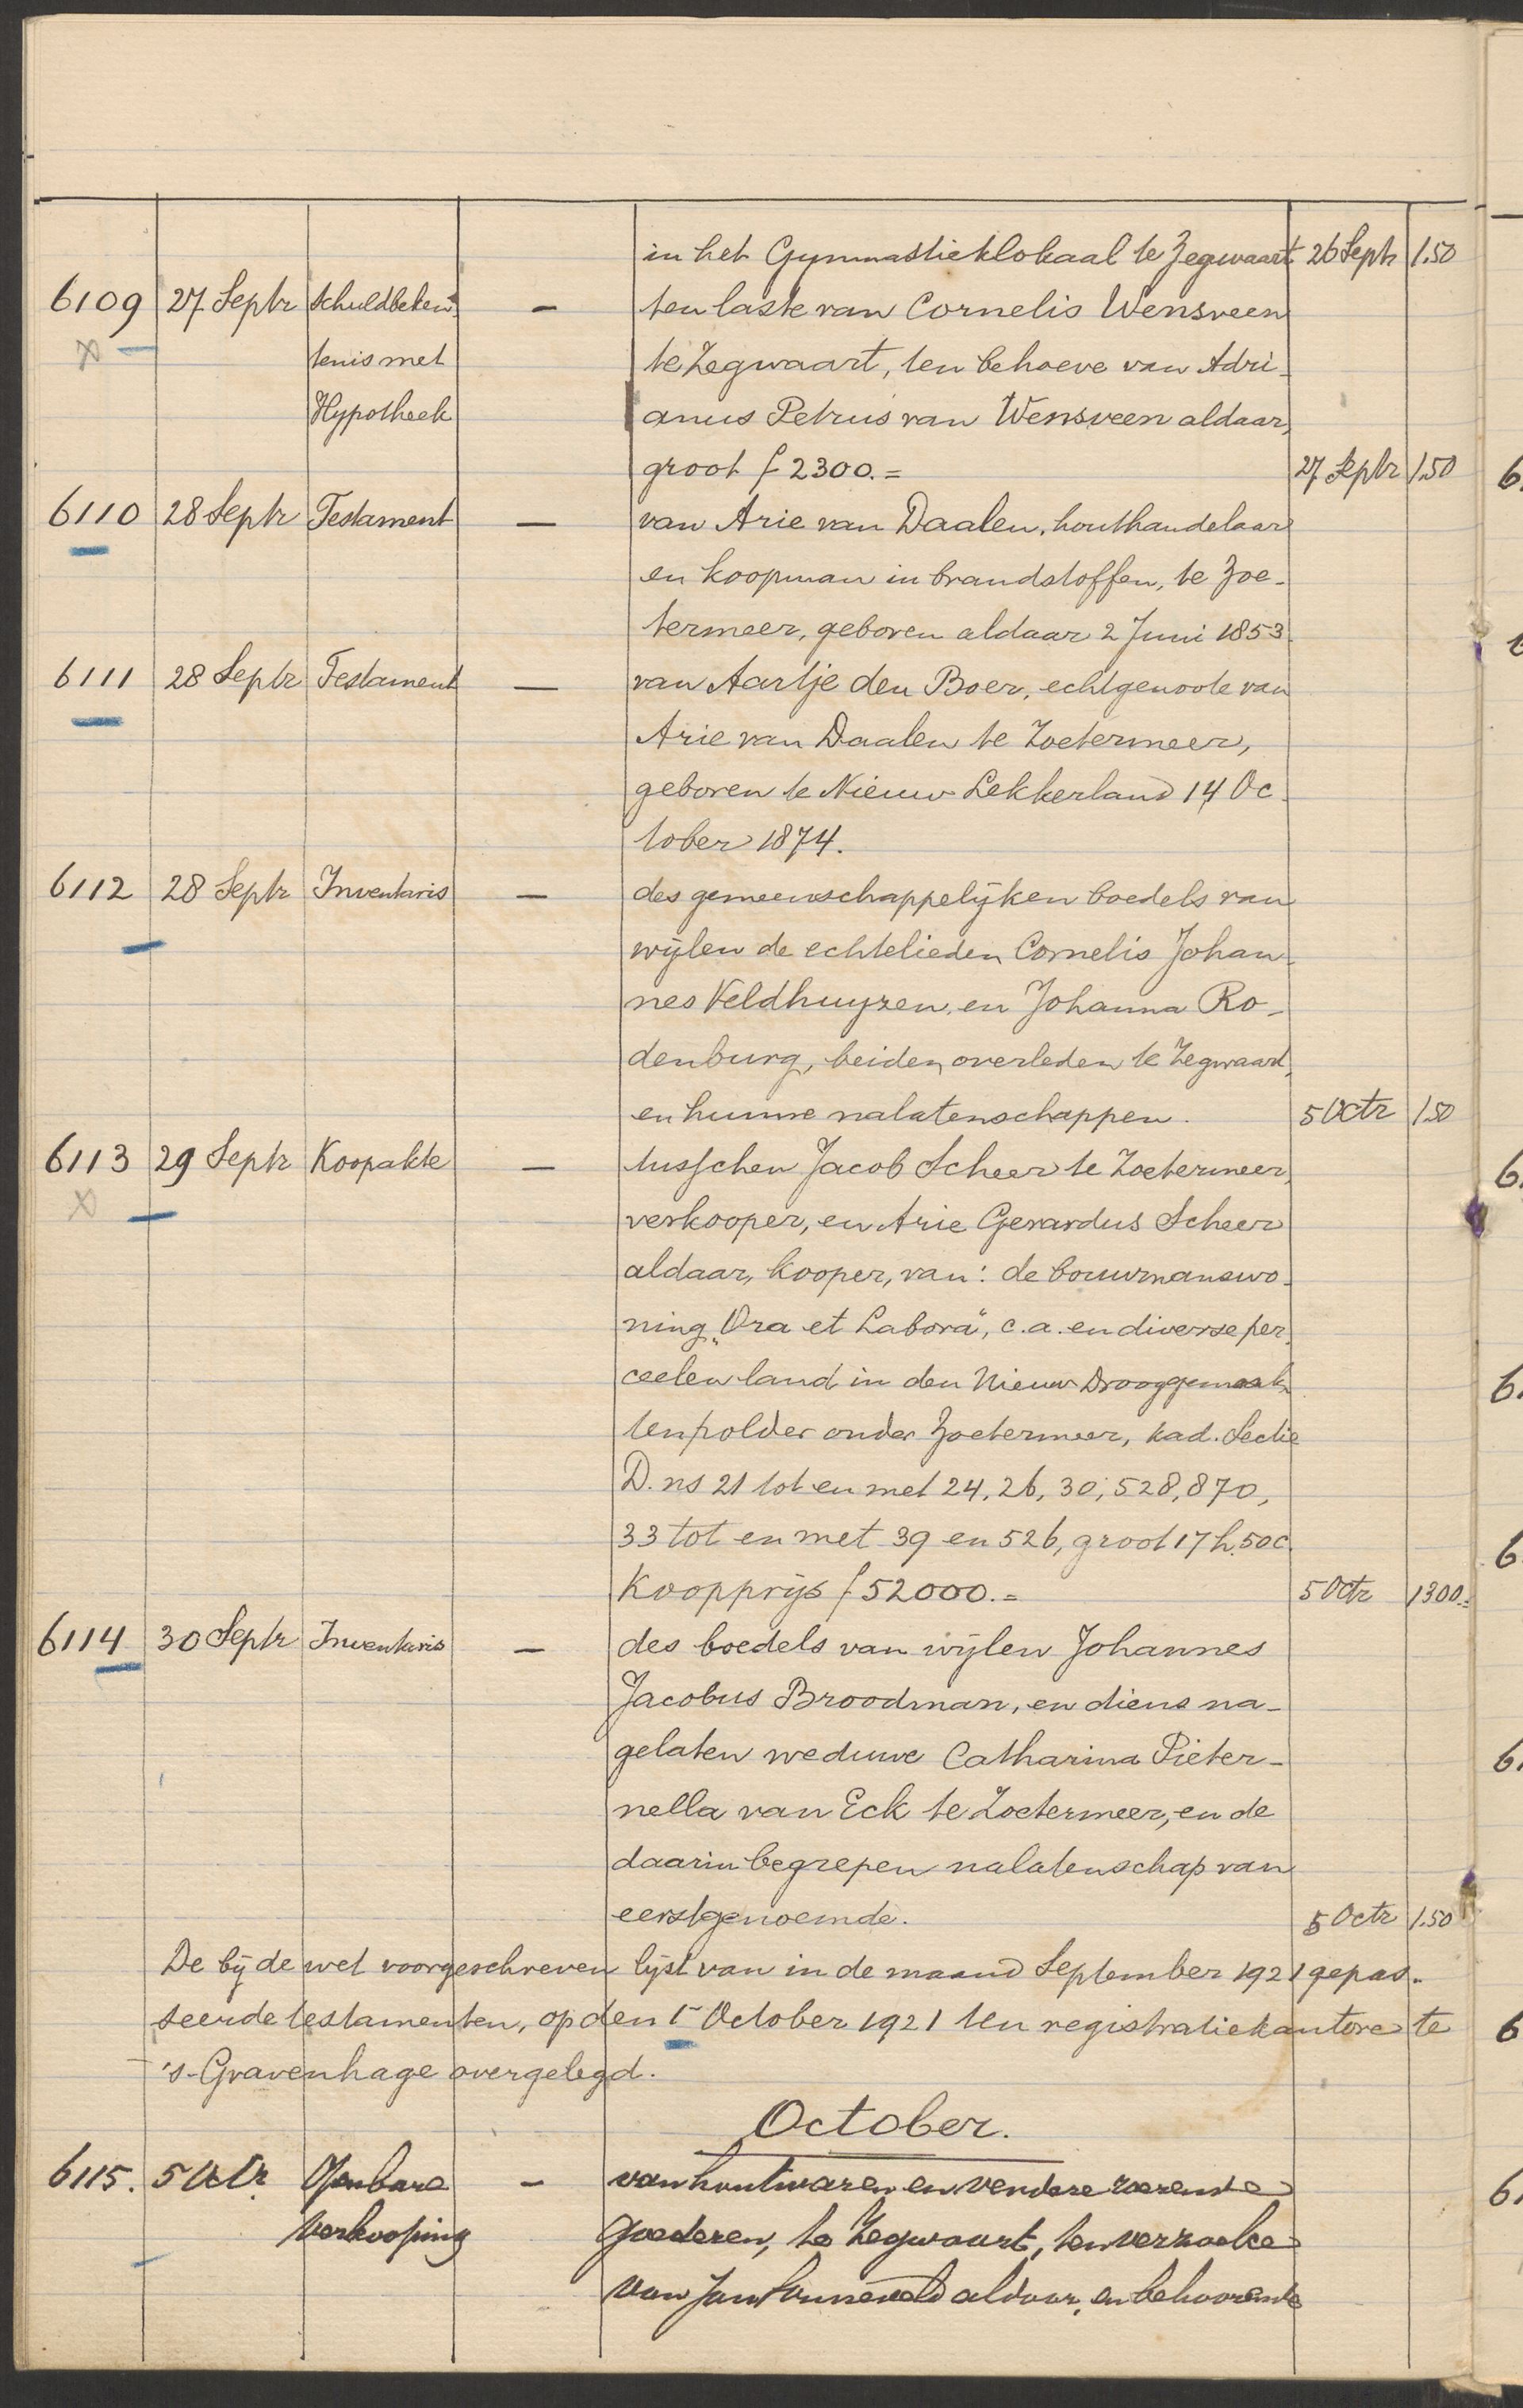 in het Gymnastieklokaal te Zegwaart 26 Septr 1.50
6109 27 Septr Schuldbeken- — ten laste van Cornelis Wensveen
tenis met te Zegwaart, ten behoeve van Adri-
Hypotheek anus Petrus van Wensveen aldaar,
groot f 2300.= 27 Septr 1.50
6110 28 Septr Testament — van Arie van Daalen, houthandelaar
en koopman in brandstoffen, te Zoe-
termeer, geboren aldaar 2 Juni 1853.
6111 28 Septr Testament — van Aartje den Boer, echtgenoote van
Arie van Daalen te Zoetermeer,
geboren te Nieuw-Lekkerland 14 Oc-
tober 1874.
6112 28 Septr Inventaris — des gemeenschappelijken boedels van
wijlen de echtelieden Cornelis Johan-
nes Veldhuyzen en Johanna Ro-
denburg, beiden overleden te Zegwaard,
en hunne nalatenschappen. 5 Octr 1.50
6113 29 Septr Koopakte — tusschen Jacob Scheer te Zoetermeer,
verkooper, en Arie Gerardus Scheer
aldaar, kooper, van: de bouwmanswo-
ning „Ora et Labora", c.a. en diverse per-
ceelen land in den Nieuw Drooggemaak-
tenpolder onder Zoetermeer, kad. Sectie
D. ns 21 tot en met 24, 26, 30, 528, 870,
33 tot en met 39 en 526, groot 17 h. 50 c.
Koopprijs f 52000.= 5 Octr 1300.=
6114 30 Septr Inventaris — des boedels van wijlen Johannes
Jacobus Broodman, en diens na-
gelaten weduwe Catharina Pieter-
nella van Eck te Zoetermeer, en de
daarin begrepen nalatenschap van
eerstgenoemde. 5 Octr 1.50
De bij de wet voorgeschreven lijst van in de maand September 1921 gepas-
seerde testamenten, op den 1- October 1921 ten registratiekantore te
's-Gravenhage overgelegd.
October.
6115. 5 Octr. Openbare — van houtwaren en verdere roerende
Verkooping goederen, te Zegwaart, ten verzoeke
van Jan aldaar, en behoorende